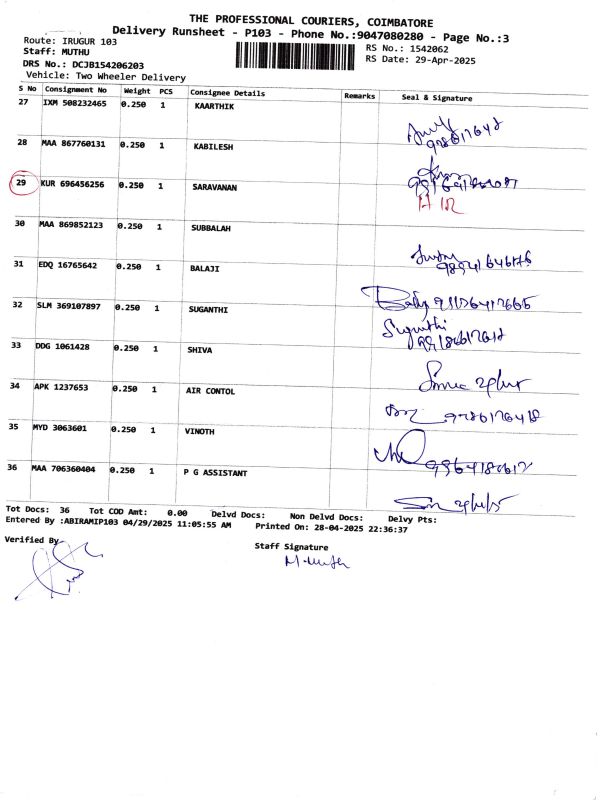 THE PROFESSIONAL COURIERS, COIMBATORE
Delivery Runsheet - P103 - Phone No.:9047080280 - Page No.:3
Route: IRUGUR 103
RS No.: 1542062
Staff: MUTHU
RS Date: 29-Apr-2025
DRS No.: DCJB154206203
Vehicle: Two Wheeler Delivery
S No Consignment No Weight PCS Consignee Details Remarks Seal & Signature
27 IXM 508232465 0.250 1 KAARTHIK
28 MAA 867760131 0.250 1 KABILESH
29 KUR 696456256 0.250 1 SARAVANAN
30 MAA 869852123 0.250 1 SUBBALAH
31 EDQ 16765642 0.250 1 BALAJI
32 SLM 369107897 0.250 1 SUGANTHI
Suganthi
33 DDG 1061428 0.250 1 SHIVA
34 APK 1237653 0.250 1 AIR CONTOL
35 MYD 3063601 0.250 1 VINOTH
36 MAA 706360404 0.250 1 P G ASSISTANT
Tot Docs: 36 Tot COD Amt: 0.00 Delvd Docs: Non Delvd Docs: Delvy Pts:
Entered By :ABIRAMIP103 04/29/2025 11:05:55 AM Printed On: 28-04-2025 22:36:37
Verified By
Staff Signature